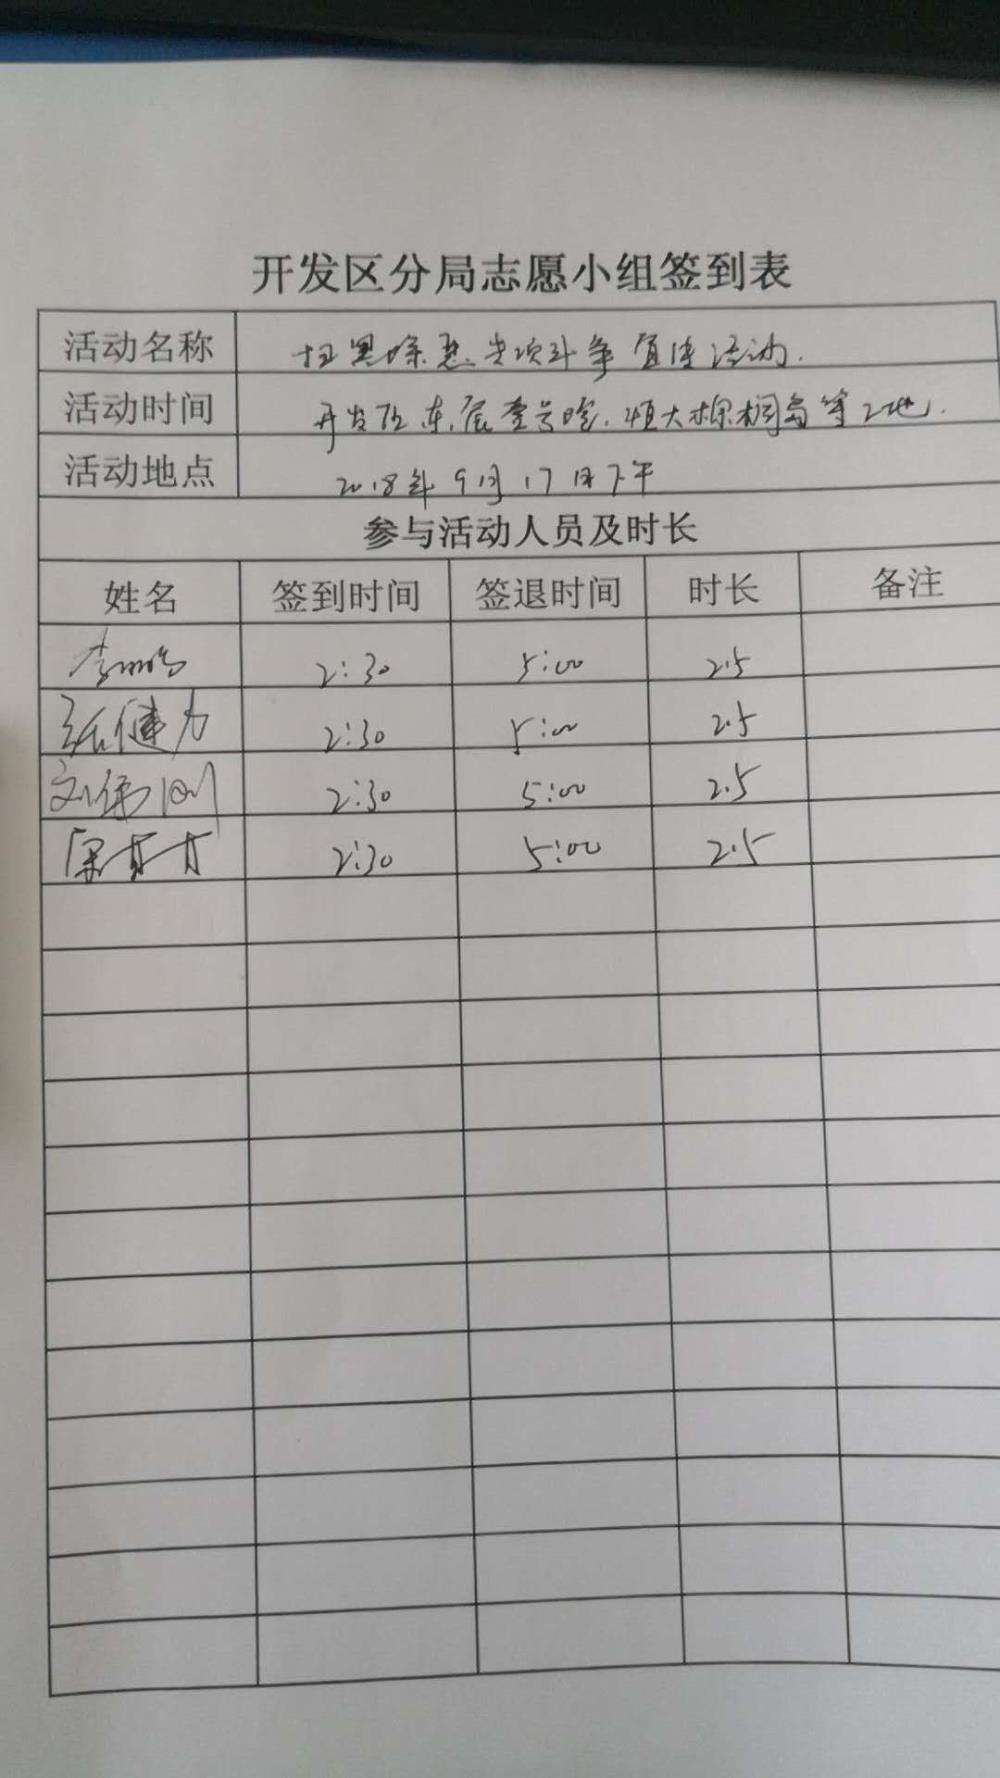 开发区分局志愿小组签到表
活动名称 扫黑除恶专项斗争宣传活动.
活动时间 开发区东.宸壹号院.恒大棕榈岛等工地.
活动地点 2018年9月17日下午
参与活动人员及时长
姓名 签到时间 签退时间 时长 备注
李 2:30 5:00 2.5
张健力 2:30 5:00 2.5
刘伟刚 2:30 5:00 2.5
2:30 5:00 2.5